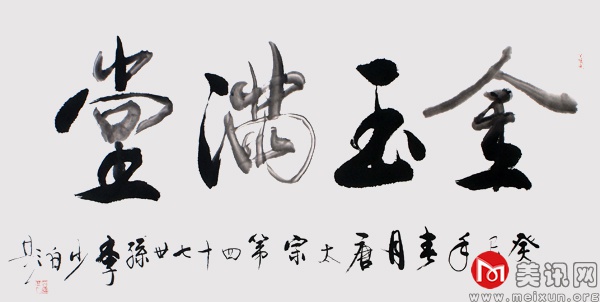 金玉满堂
癸巳年春月唐太宗第四十七世孫李少泊
美讯网
www.meixun.org